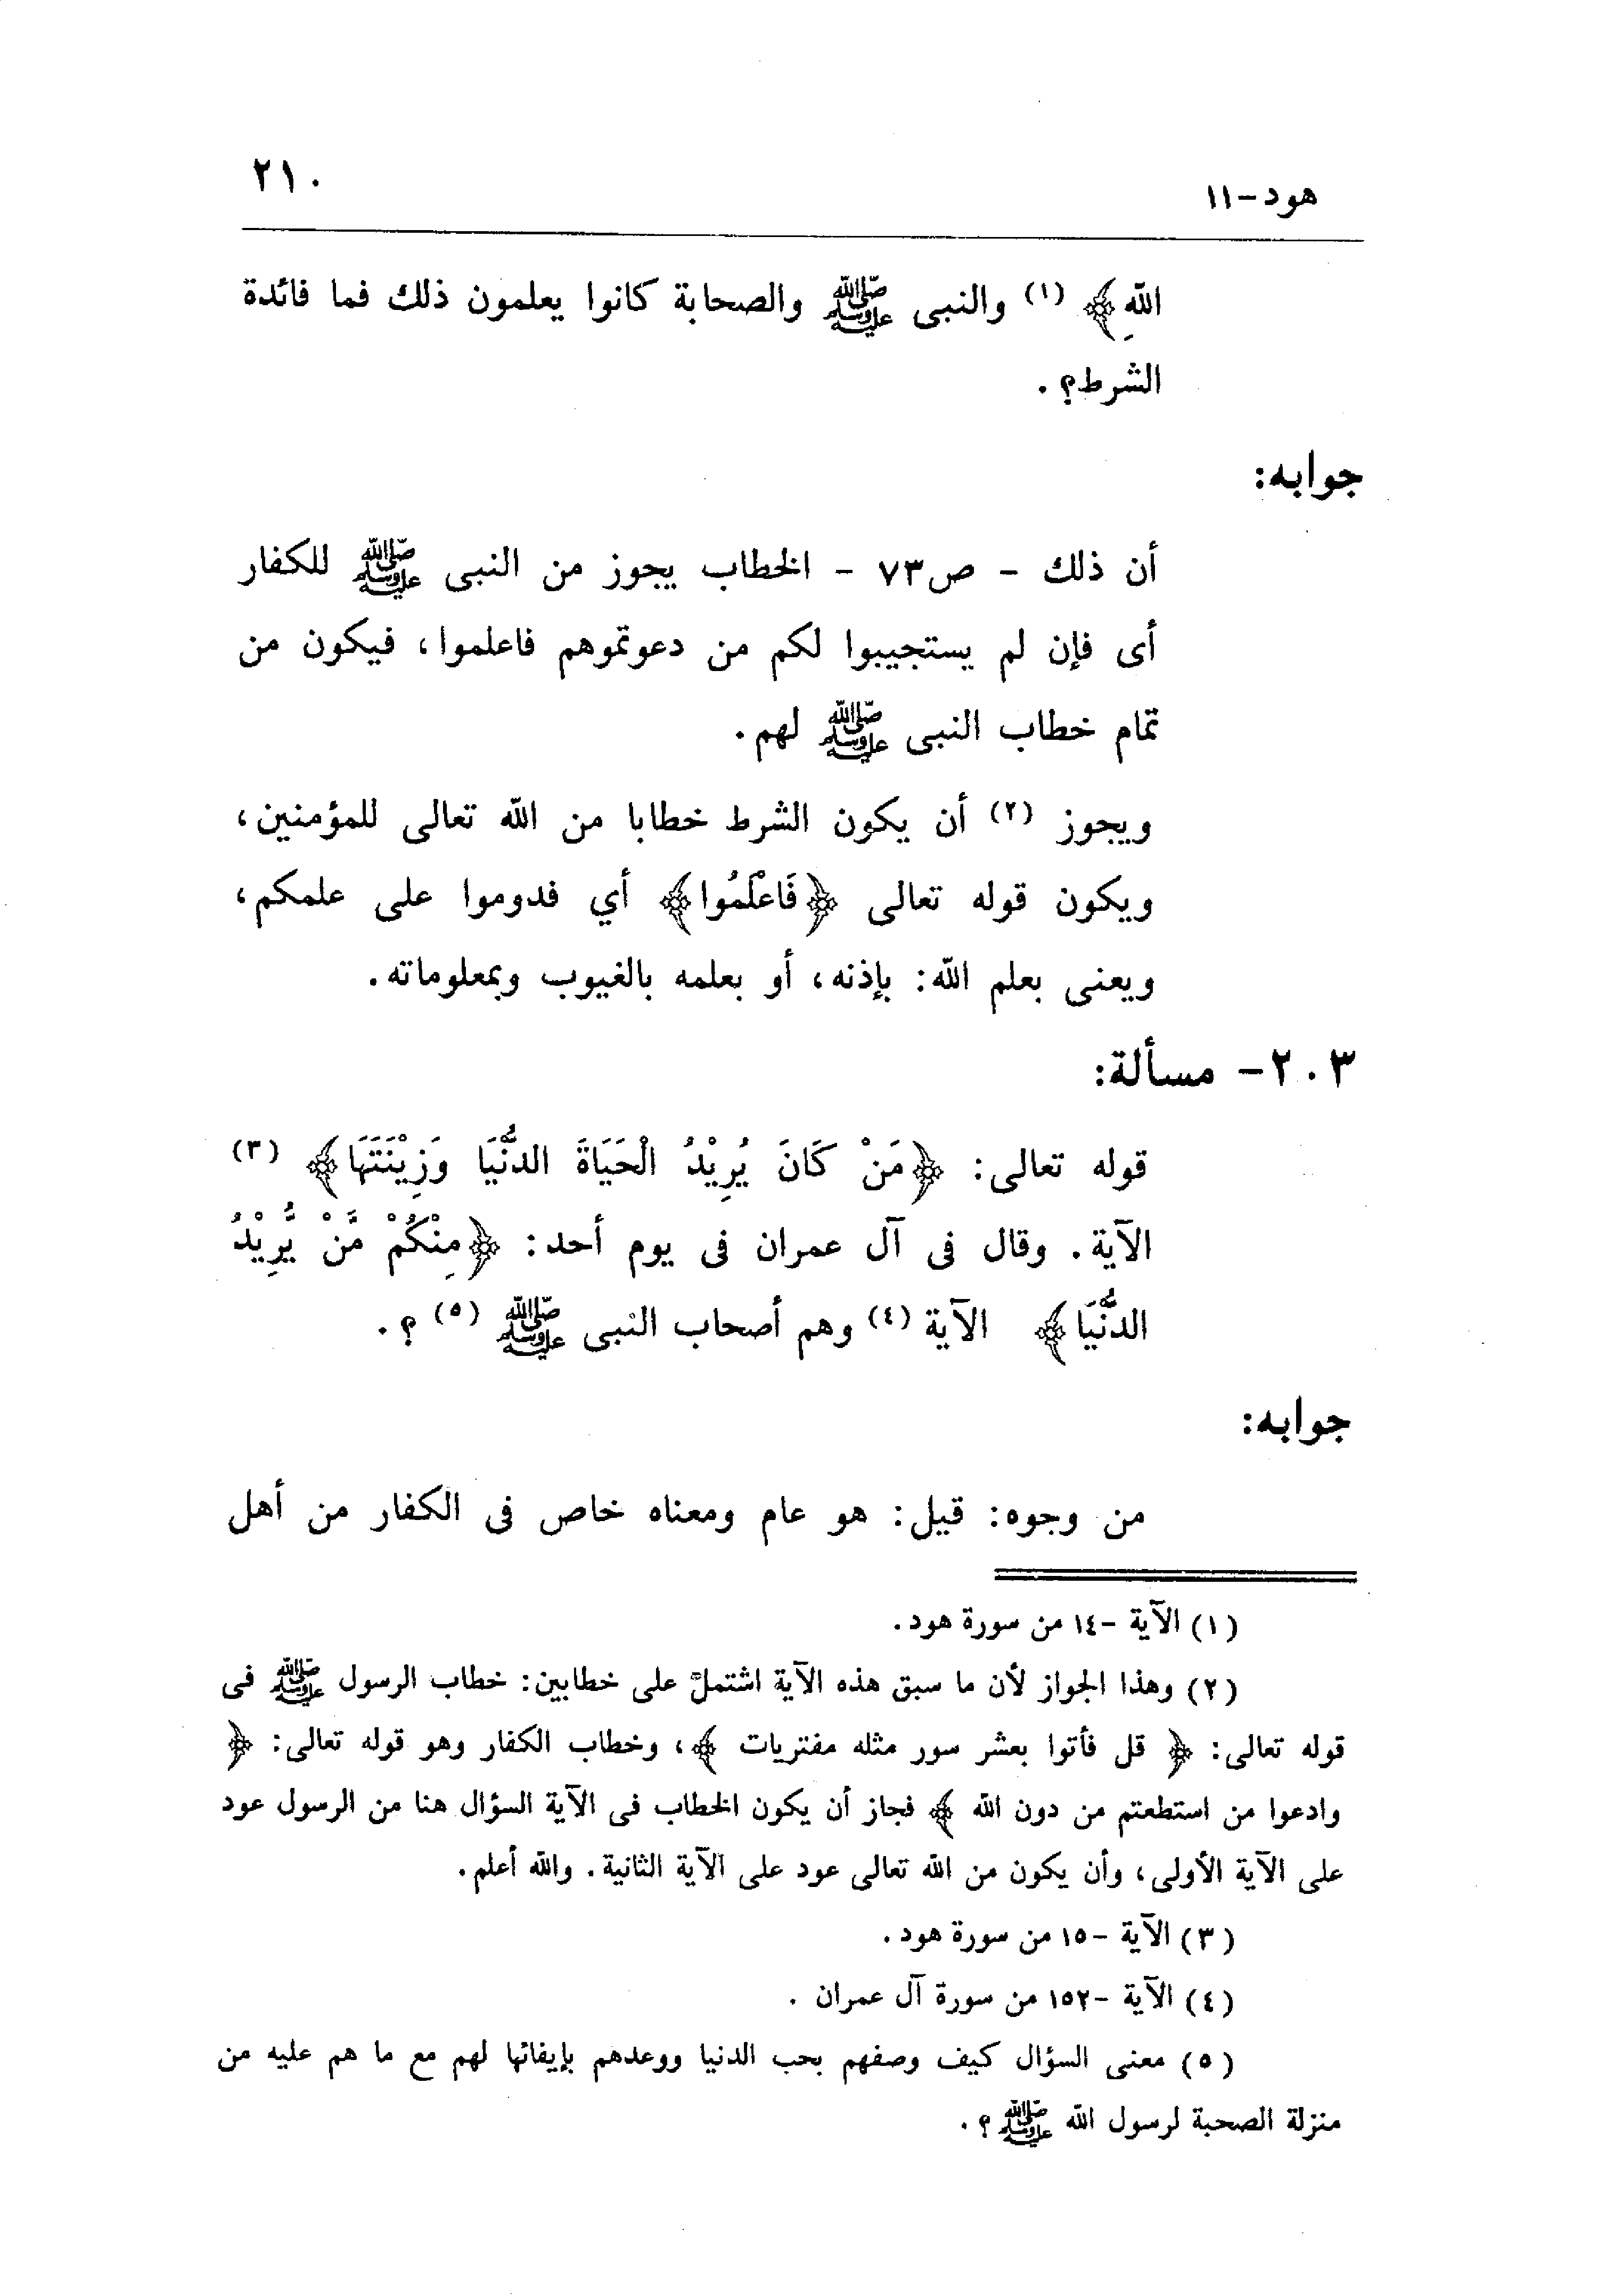 هود-١١
٢١٠
اللهِ﴾ (١) والنبى ﷺ والصحابة كانوا يعلمون ذلك فما فائدة
الشرط؟ .
جوابه:
أن ذلك - ص٧٣ - الخطاب يجوز من النبى ﷺ للكفار
أى فإن لم يستجيبوا لكم من دعوتموهم فاعلموا، فيكون من
تمام خطاب النبى ﷺ لهم.
ويجوز (٢) أن يكون الشرط خطابا من الله تعالى للمؤمنين،
ويكون قوله تعالى ﴿فَاعْلَمُوا﴾ أي فدوموا على علمكم،
ويعنى بعلم الله: بإذنه، أو بعلمه بالغيوب وبمعلوماته.
٢٠٣- مسألة:
قوله تعالى: ﴿مَنْ كَانَ يُرِيْدُ الْحَيَاةَ الدُّنْيَا وَزِيْنَتَهَا﴾ (٣)
الآية. وقال فى آل عمران فى يوم أحد: ﴿مِنْكُمْ مَّنْ يُّرِيْدُ
الدُّنْيَا﴾ الآية (٤) وهم أصحاب النبى ﷺ (٥) ؟ .
جوابه:
من وجوه: قيل: هو عام ومعناه خاص فى الكفار من أهل
(١) الآية -١٤ من سورة هود.
(٢) وهذا الجواز لأن ما سبق هذه الآية اشتمل على خطابين: خطاب الرسول ﷺ فى
قوله تعالى: ﴿ قل فأتوا بعشر سور مثله مفتريات ﴾، وخطاب الكفار وهو قوله تعالى: ﴿
وادعوا من استطعتم من دون الله ﴾ فجاز أن يكون الخطاب فى الآية السؤال هنا من الرسول عود
على الآية الأولى، وأن يكون من الله تعالى عود على الآية الثانية. والله أعلم.
(٣) الآية -١٥ من سورة هود.
(٤) الآية -١٥٢ من سورة آل عمران .
(٥) معنى السؤال كيف وصفهم بحب الدنيا ووعدهم بإيفائها لهم مع ما هم عليه من
منزلة الصحبة لرسول الله ﷺ؟ .